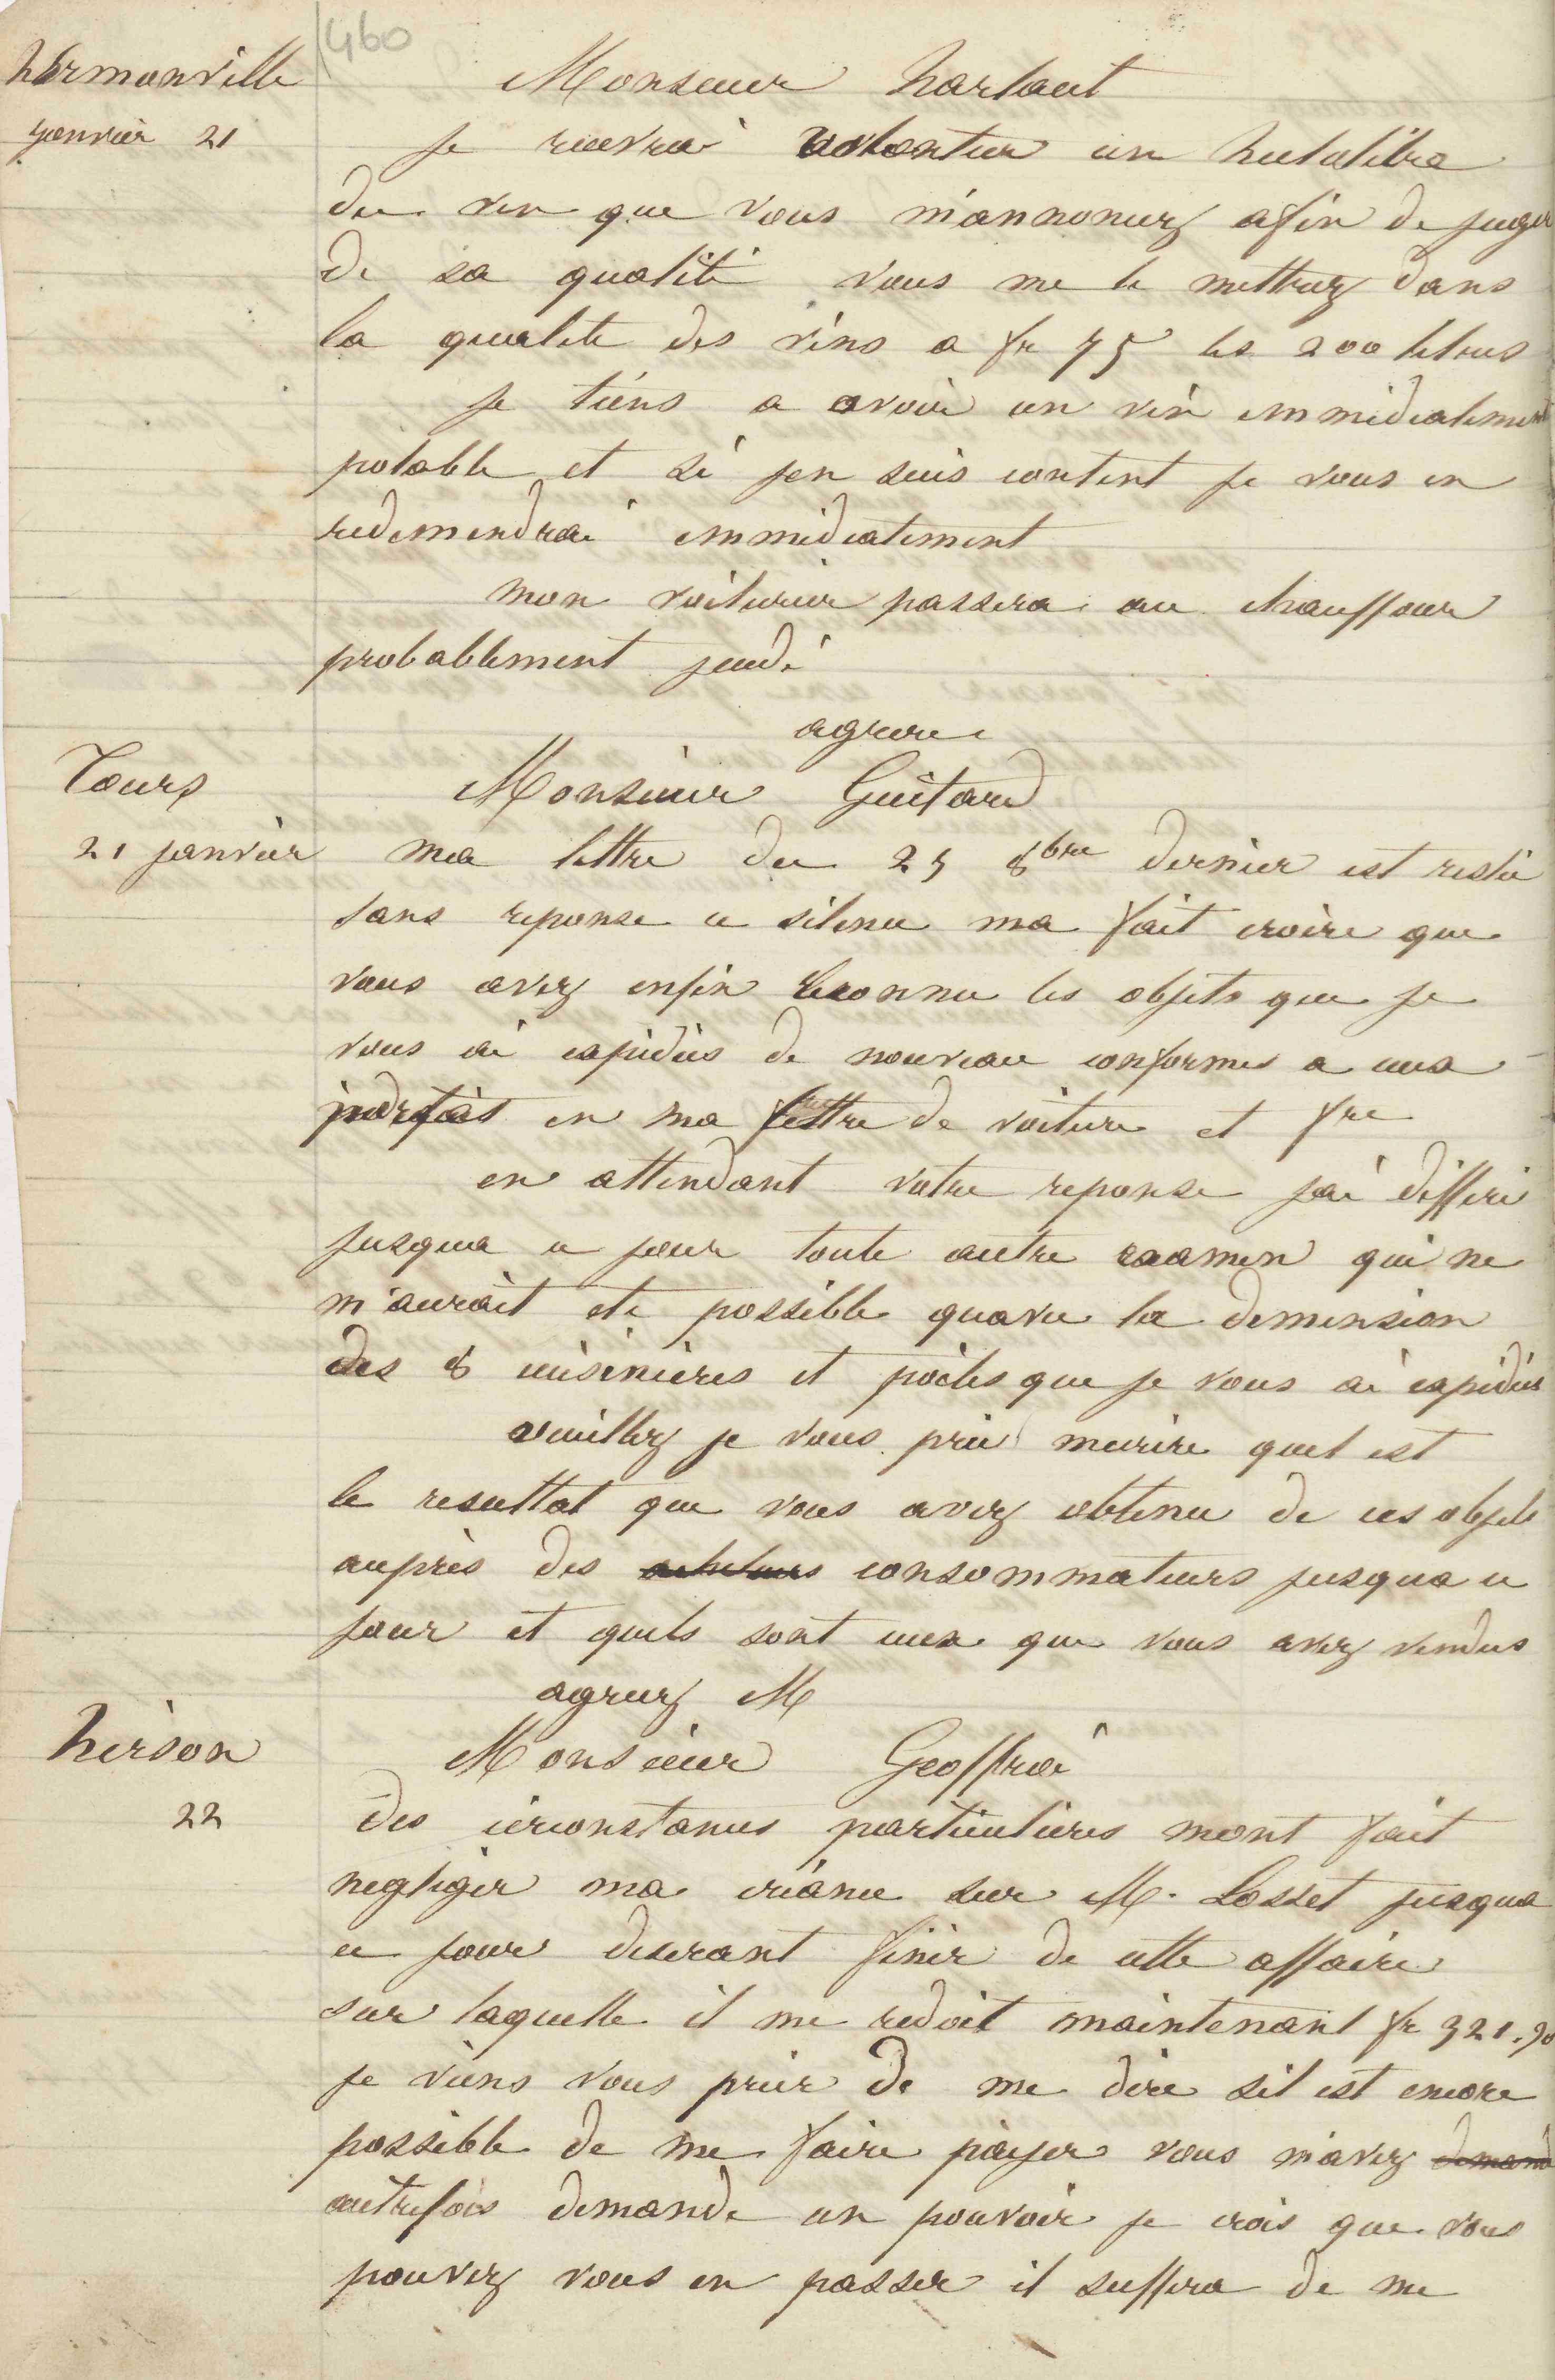 460
hermonville
janvier 21
Monsieur harlaut
je recevrai volontier un hectolitre
du vin que vous m'annoncez afin de juger
de sa qualité vous me le mettrez dans
la qualité des vins a fr 75 les 200 litres
je tiens a avoir un vin emmediatement
potable et si jen suis content je vous en
redemendrai emmediatement
mon voiturier passera au chauffour
probablement jeudi
agreer
Tours
21 janvier
Monsieur Guitard
ma lettre du 25 8bre dernier est restée
sans reponse ce silence ma fait croire que
vous avez enfin reconnu les objets que je
vous ai expidiés de nouveau conformes a ceux
en ma lettre de voiture et fre
en attendant votre reponse jai differé
jusqua ce jour toute autre examen qui ne
m'aurait ete possible quavec la demension
des 8 cuisinieres et poëles que je vous ai expidiés
veuillez je vous prie mecrire quel est
le resultat que vous avez obtenu de ces objets
auprès des acheteurs consommateurs jusqua ce
jour et quels sont ceux que vous avez vendus
agreez M
hirson
22
Monsieur Geoffroi
Des circonstances particulieres mont fait
negliger ma créance sur M. Losset jusqua
ce jour diserant finir de cette affaire
sur laquelle il me redoit maintenant fr 321.90
je viens vous prier de me dire sil est encore
possible de me faire payer vous m'avez demand
autrefois demande un pouvoir je crois que vous
pouvez vous en passer il suffira de me